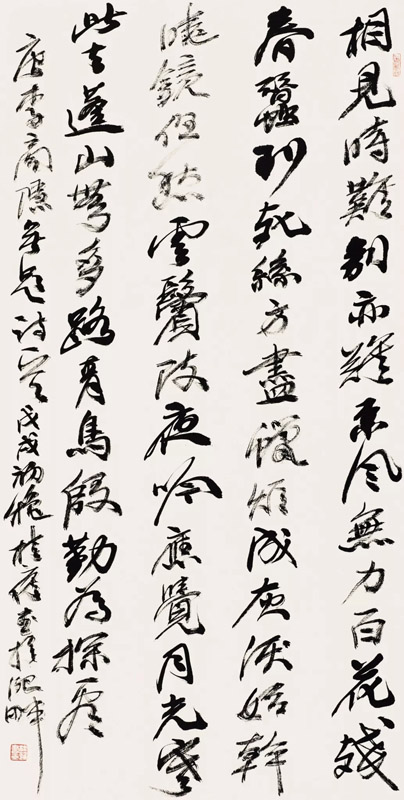 相見時難別亦難東風無力百花殘
春蠶到死絲方盡蠟炬成灰淚始幹
曉鏡但愁雲鬢改夜吟應覺月光寒
此去蓬山無多路青鳥殷勤為探看
唐李商隱無題詩一首戊戌初